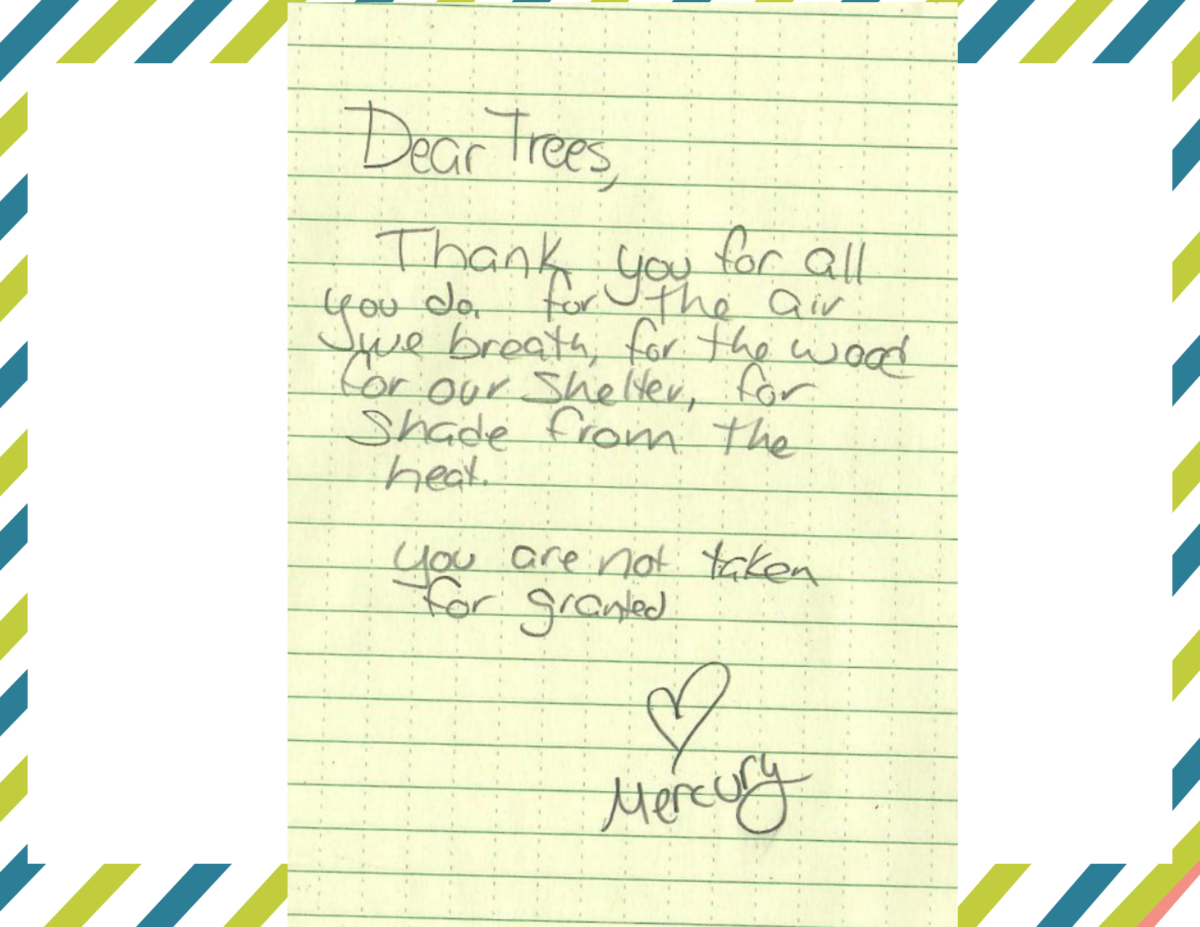 Dear Trees,
Thank you for all
you do. for the air
we breath, for the wood
for our shelter, for
shade from the
heat.
you are not taken
for granted
Mercury